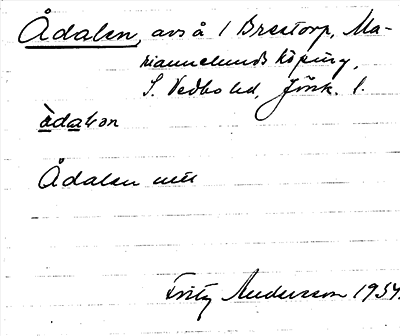 Ådalen, avs å 1 Brestorp, Ma-
riannelunds köping,
S. Vedbo hd, Jönk. l.
àdalən
Ådalen
Fritz Andersson 1934.